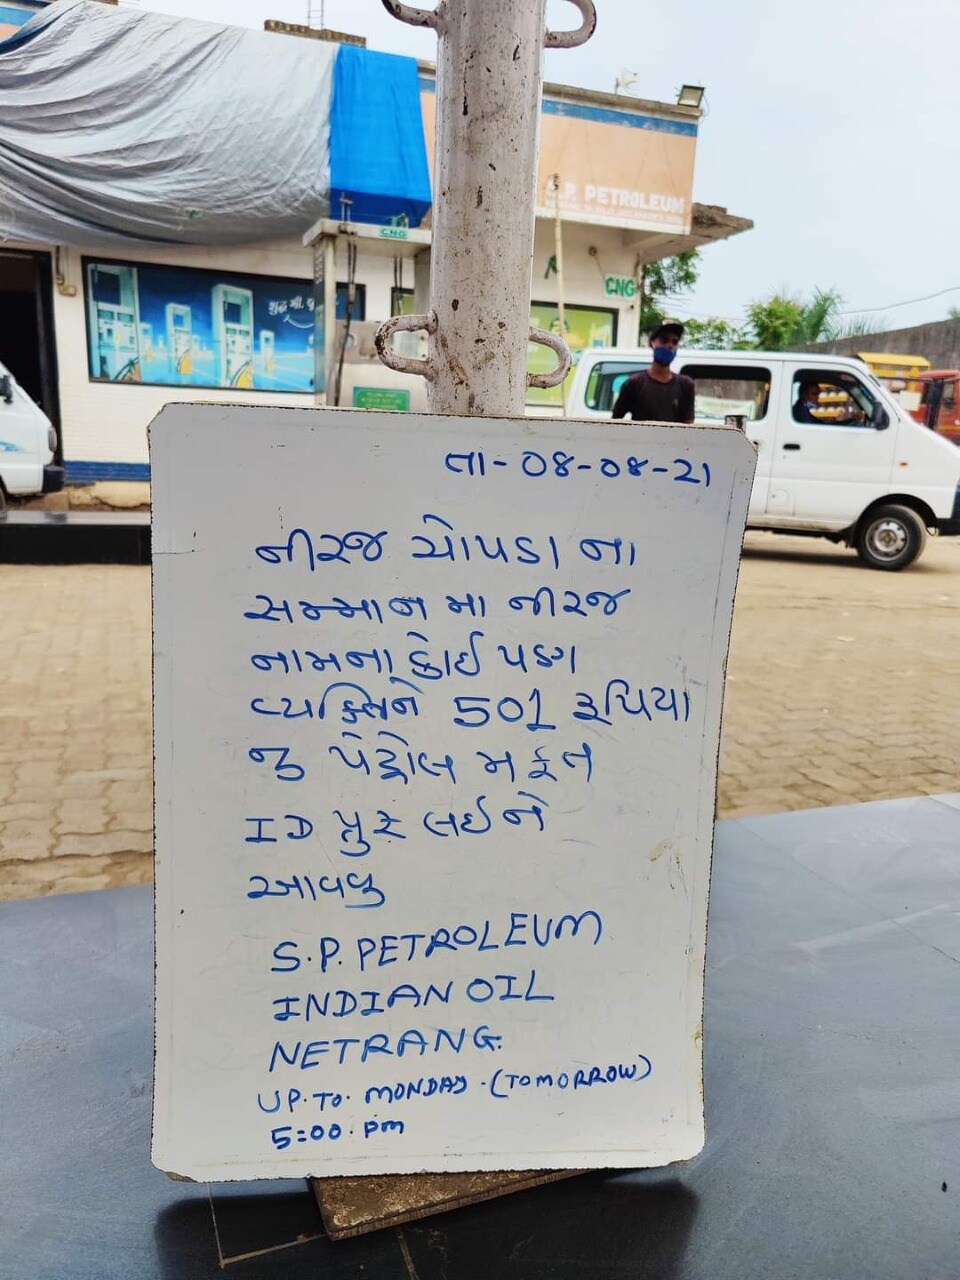 S.P. PETROLEUM
CNG
CNG
તા-08-08-21
નીરજ ચોપડા ના
સન્માન મા નીરજ
નામના કોઈ પણ
વ્યક્તિને 501 રૂપિયા
નુ પેટ્રોલ મફત
ID પ્રુફ લઈને
આવવુ
S.P. PETROLEUM
INDIAN OIL
NETRANG.
UP.TO. MONDAY.(TOMORROW)
5:00.pm